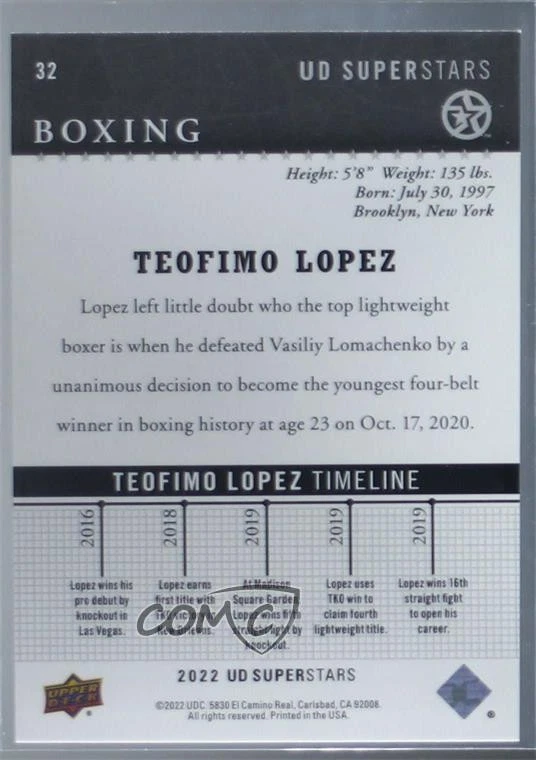 32
UD SUPERSTARS
BOXING
Height: 5'8" Weight: 135 lbs.
Born: July 30, 1997
Brooklyn, New York
TEOFIMO LOPEZ
Lopez left little doubt who the top lightweight
boxer is when he defeated Vasiliy Lomachenko by a
unanimous decision to become the youngest four-belt
winner in boxing history at age 23 on Oct. 17, 2020.
TEOFIMO LOPEZ TIMELINE
2016
Lopez wins his
pro debut by
knockout in
Las Vegas.
2018
Lopez earns
first title with
TKO
2019
At Madison
Square Garden,
Lopez wins fifth
straight fight by
knockout.
2019
Lopez uses
TKO win to
claim fourth
lightweight title.
2019
Lopez wins 16th
straight fight
to open his
career.
COMC
2022 UD SUPERSTARS
UPPER
DECK
®
©2022 UDC. 5830 El Camino Real, Carlsbad, CA 92008.
All rights reserved. Printed in the USA.
®